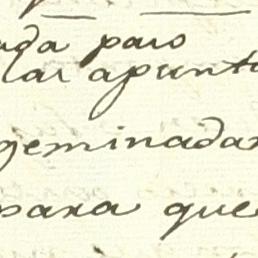 ada paso
lar apunta
geminadas
para que